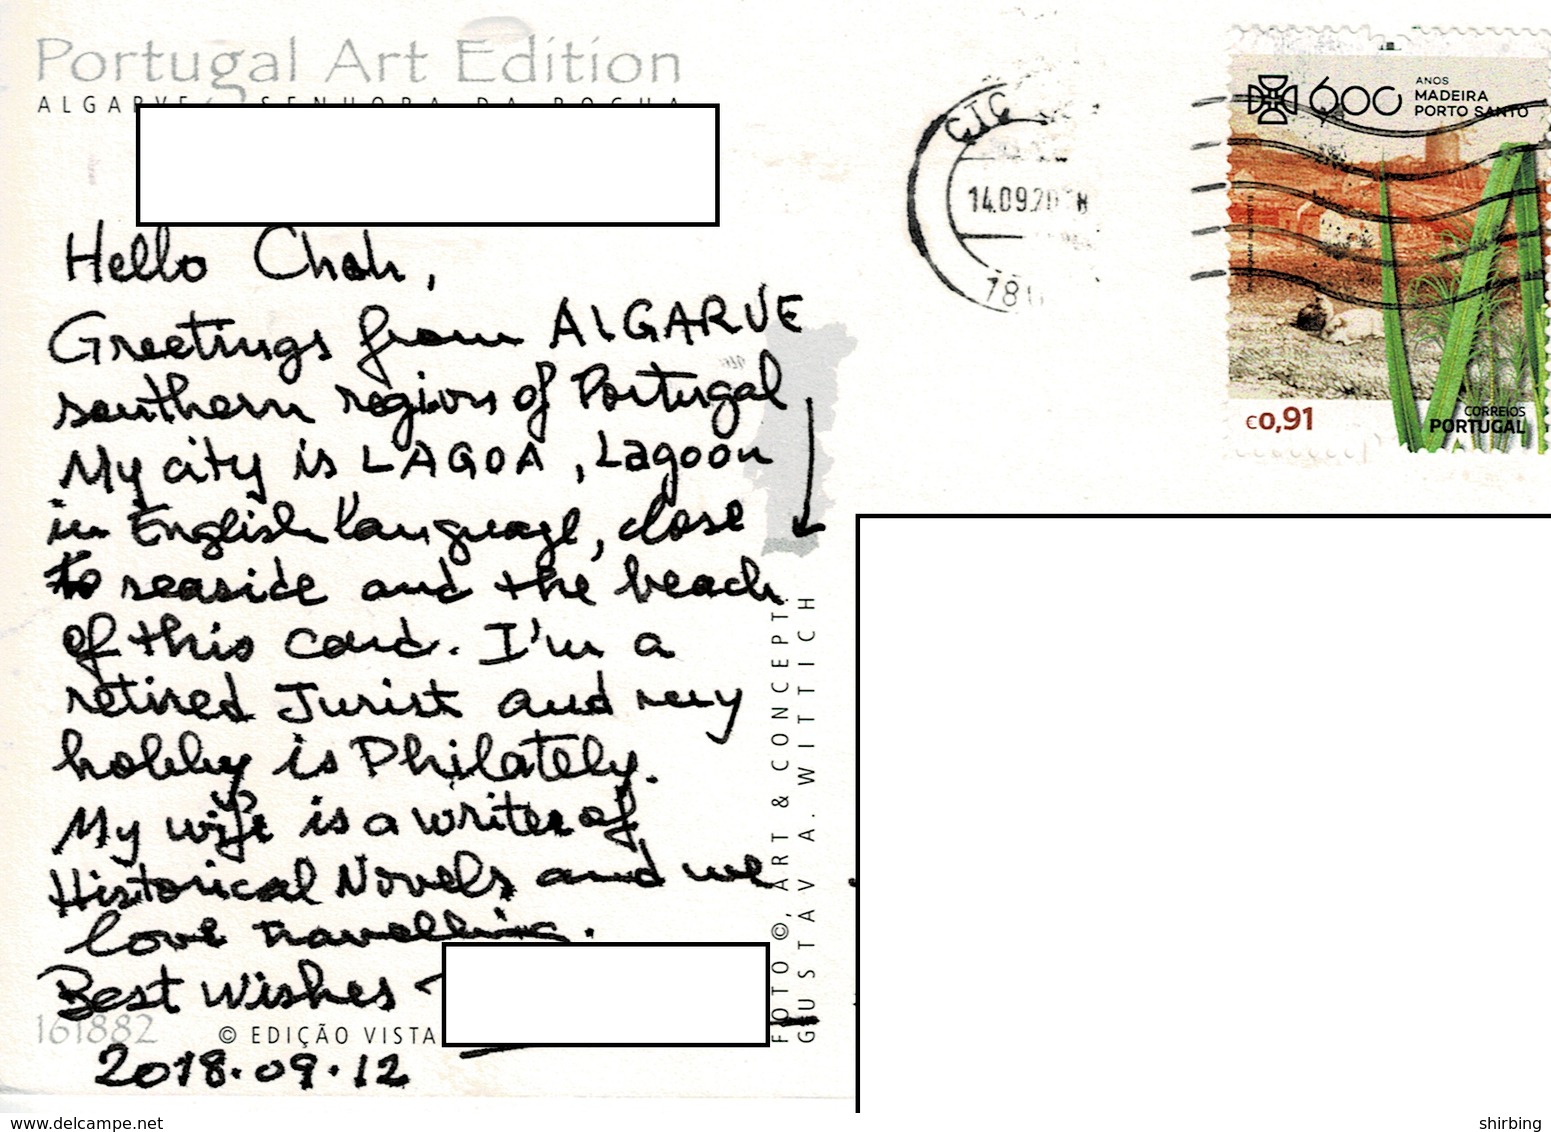 Portugal Art Edition
ALGARVE SENHORA DA ROCHA
Hello Choh,
Greetings from ALGARVE
southern region of Portugal
My city is LAGOA, Lagoon
in English language, close
to seaside and the beach
of this card. I'm a
retired Jurist and my
hobby is Philately.
My wife is a writer of
Historical Novels and we
love travelling.
Best Wishes
161882
© EDIÇÃO VISTA
2018.09.12
FOTO ©, ART & CONCEPT:
GUSTAV A. WITTICH
CTC
14.09.2018
600 ANOS
MADEIRA
PORTO SANTO
€0,91
CORREIOS
PORTUGAL
www.delcampe.net
shirbing